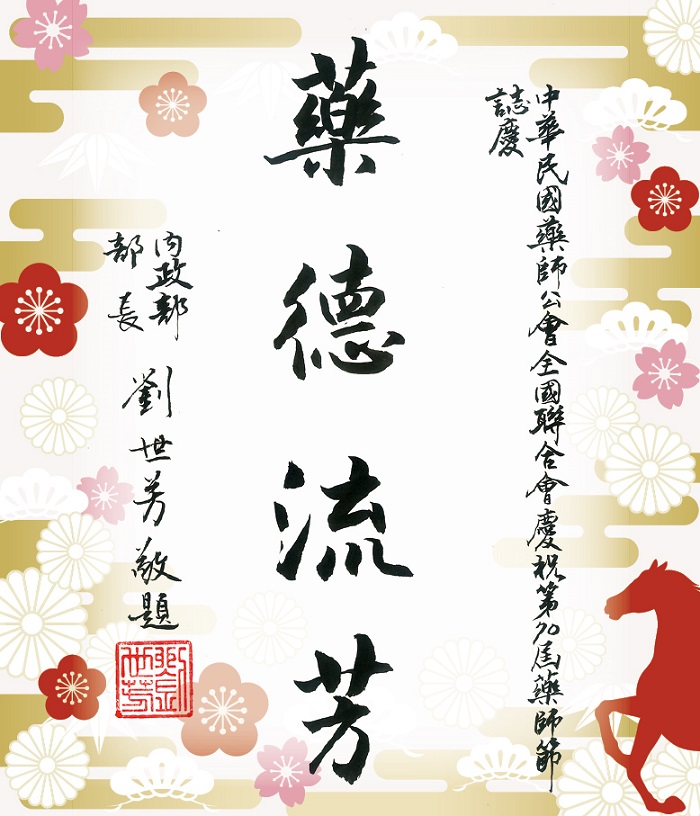 中華民國藥師公會全國聯合會慶祝第70屆藥師節
誌慶
藥德流芳
內政部
部長
劉世芳敬題
劉世芳